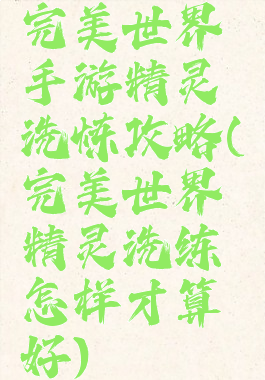 完美世界
手游精灵
洗炼攻略(
完美世界
精灵洗练
怎样才算
好)